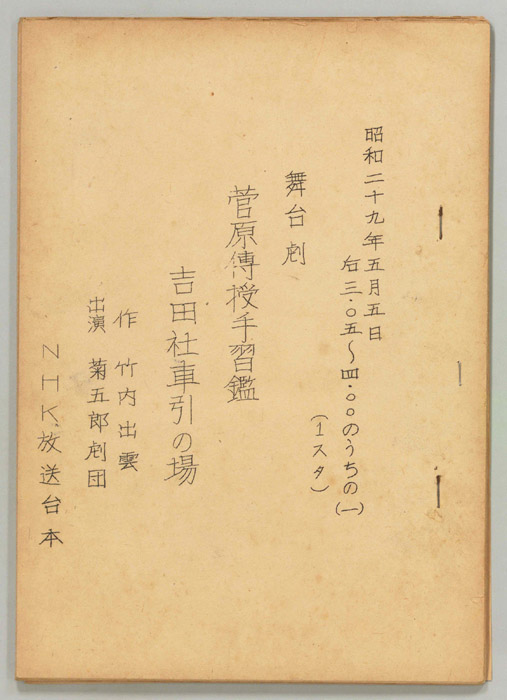 昭和二十九年五月五日
右三・〇五～四・〇〇のうちの(一)
(1スタ)
舞台劇
菅原傳授手習鑑
吉田社車引の場
作 竹内出雲
出演 菊五郎劇団
NHK放送台本